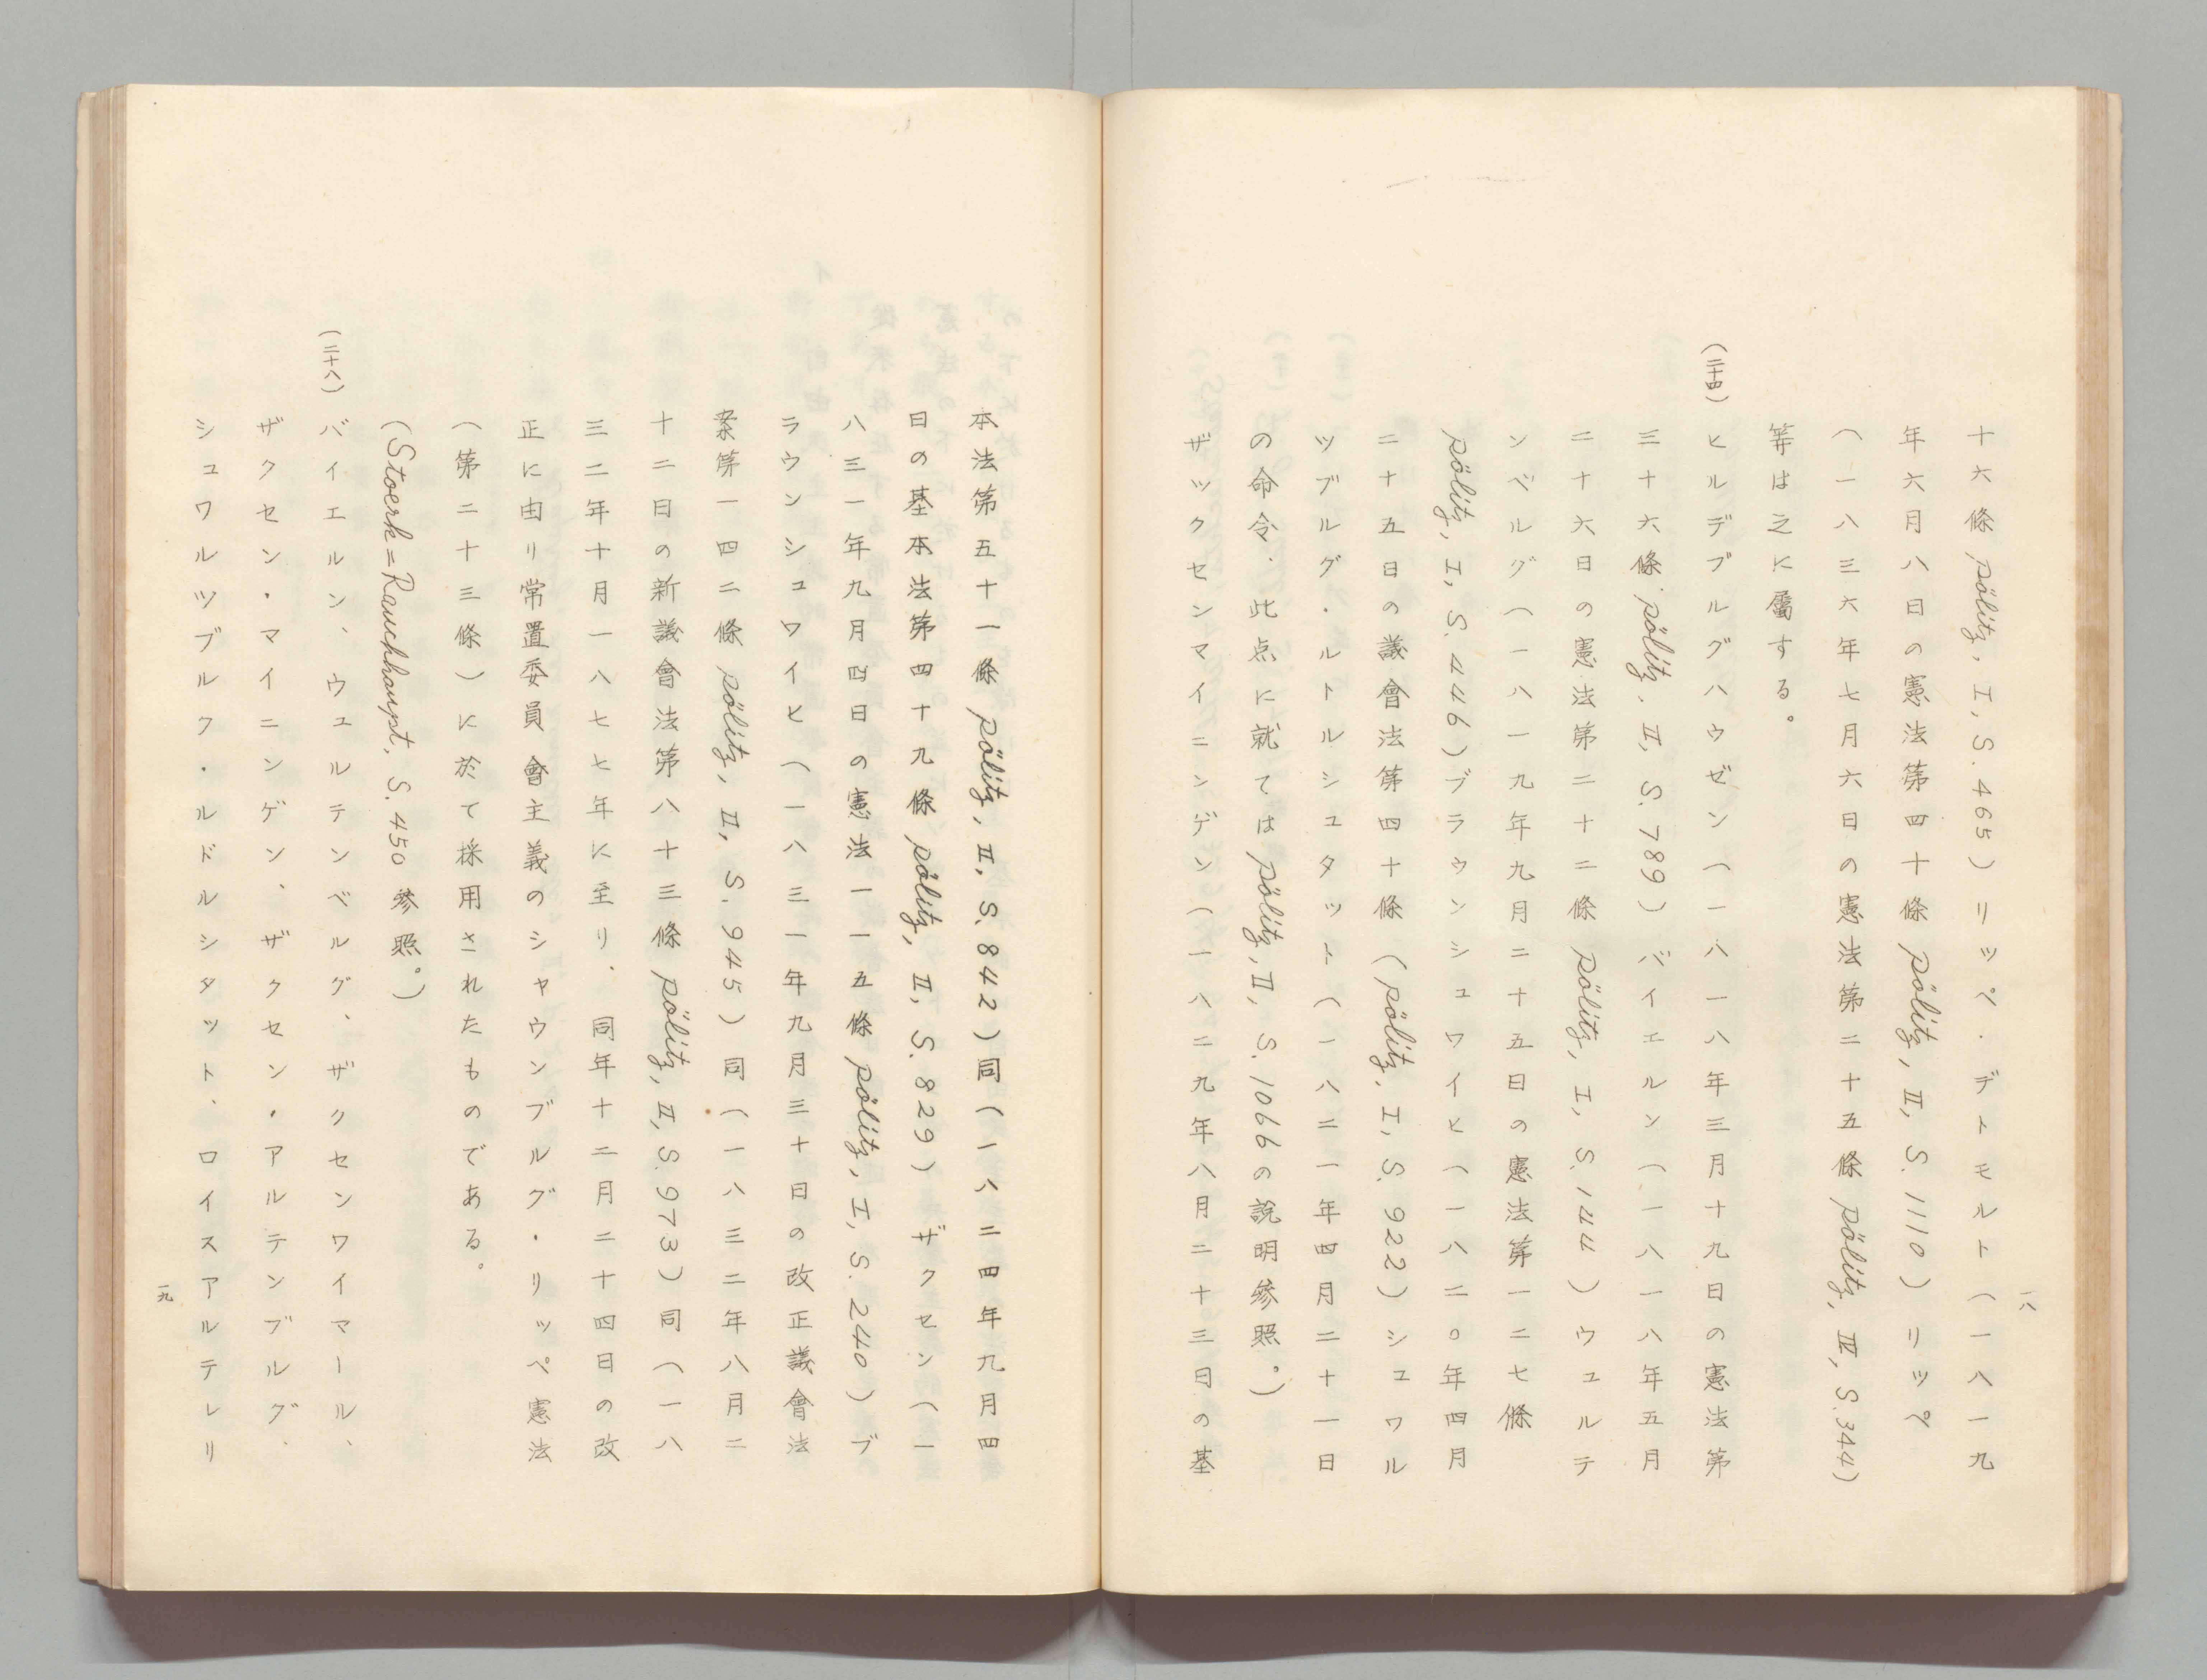 十六條 pölitz, I, S. 465）リッペ・デトモルト（一八一九
年六月八日の憲法第四十條 pölitz, II, S. 1110）リッペ
（一八三六年七月六日の憲法第二十五條 pölitz, III, S. 344）
等は之に屬する。
（二十四）ヒルデブルグハウゼン（一八一八年三月十九日の憲法第
三十六條 pölitz, II, S. 789）バイエルン（一八一八年五月
二十六日の憲法第二十二條 pölitz, I, S. 144）ウュルテ
ンベルグ（一八一九年九月二十五日の憲法第一二七條
pölitz, I, S. 446）ブラウンシュワイヒ（一八二〇年四月
二十五日の議會法第四十條（pölitz, I, S. 922）シュワル
ツブルグ・ルトルシュタット（一八二一年四月二十一日
の命令、此点に就ては pölitz, II, S. 1066の説明參照。）
ザックセンマイニンゲン（一八二九年八月二十三日の基
一八
本法第五十一條 pölitz, II, S. 842）同（一八二四年九月四
日の基本法第四十九條 pölitz, II, S. 829）ザクセン（一
八三一年九月四日の憲法一一五條 pölitz, I, S. 240）ブ
ラウンシュワイヒ（一八三一年九月三十日の改正議會法
案第一四二條 pölitz, II, S. 945）同（一八三二年八月二
十二日の新議會法第八十三條 pölitz, II, S. 973）同（一八
三二年十月一八七七年に至り、同年十二月二十四日の改
正に由り常置委員會主義のシャウンブルグ・リッペ憲法
（第二十三條）に於て採用されたものである。
（Stoerk=Rauchhaupt, S. 450 參照。）
（二十八）バイエルン、ウュルテンベルグ、ザクセンワイマール、
ザクセン・マイニンゲン、ザクセン・アルテンブルグ、
シュワルツブルク・ルドルシタット、ロイスアルテレリ
一九